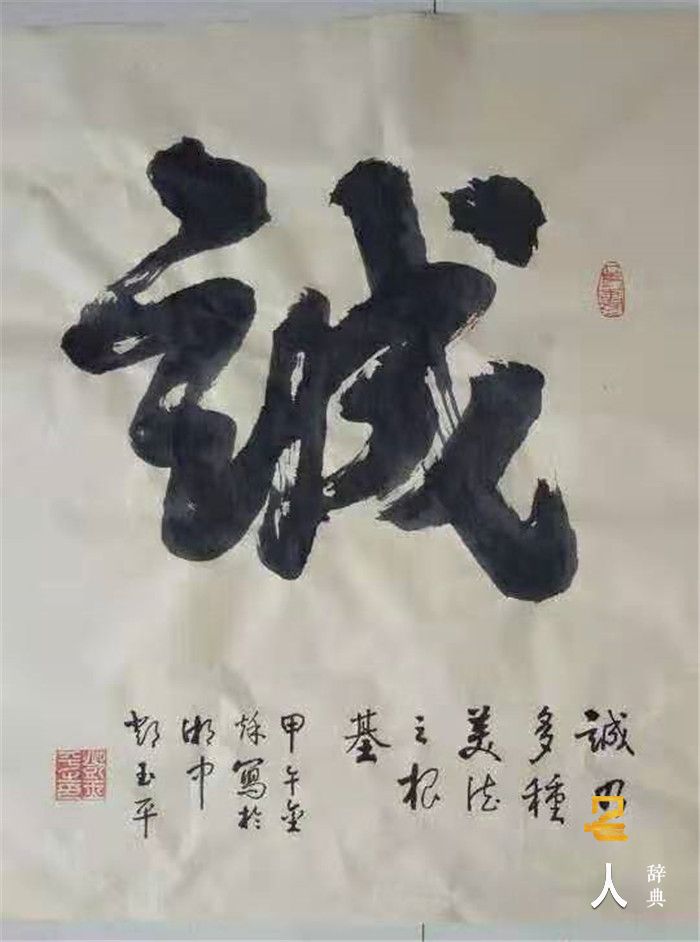 誠
誠
多種
美德
之根
基
甲午金
秋寫於
湘中
玉平
人
辞典